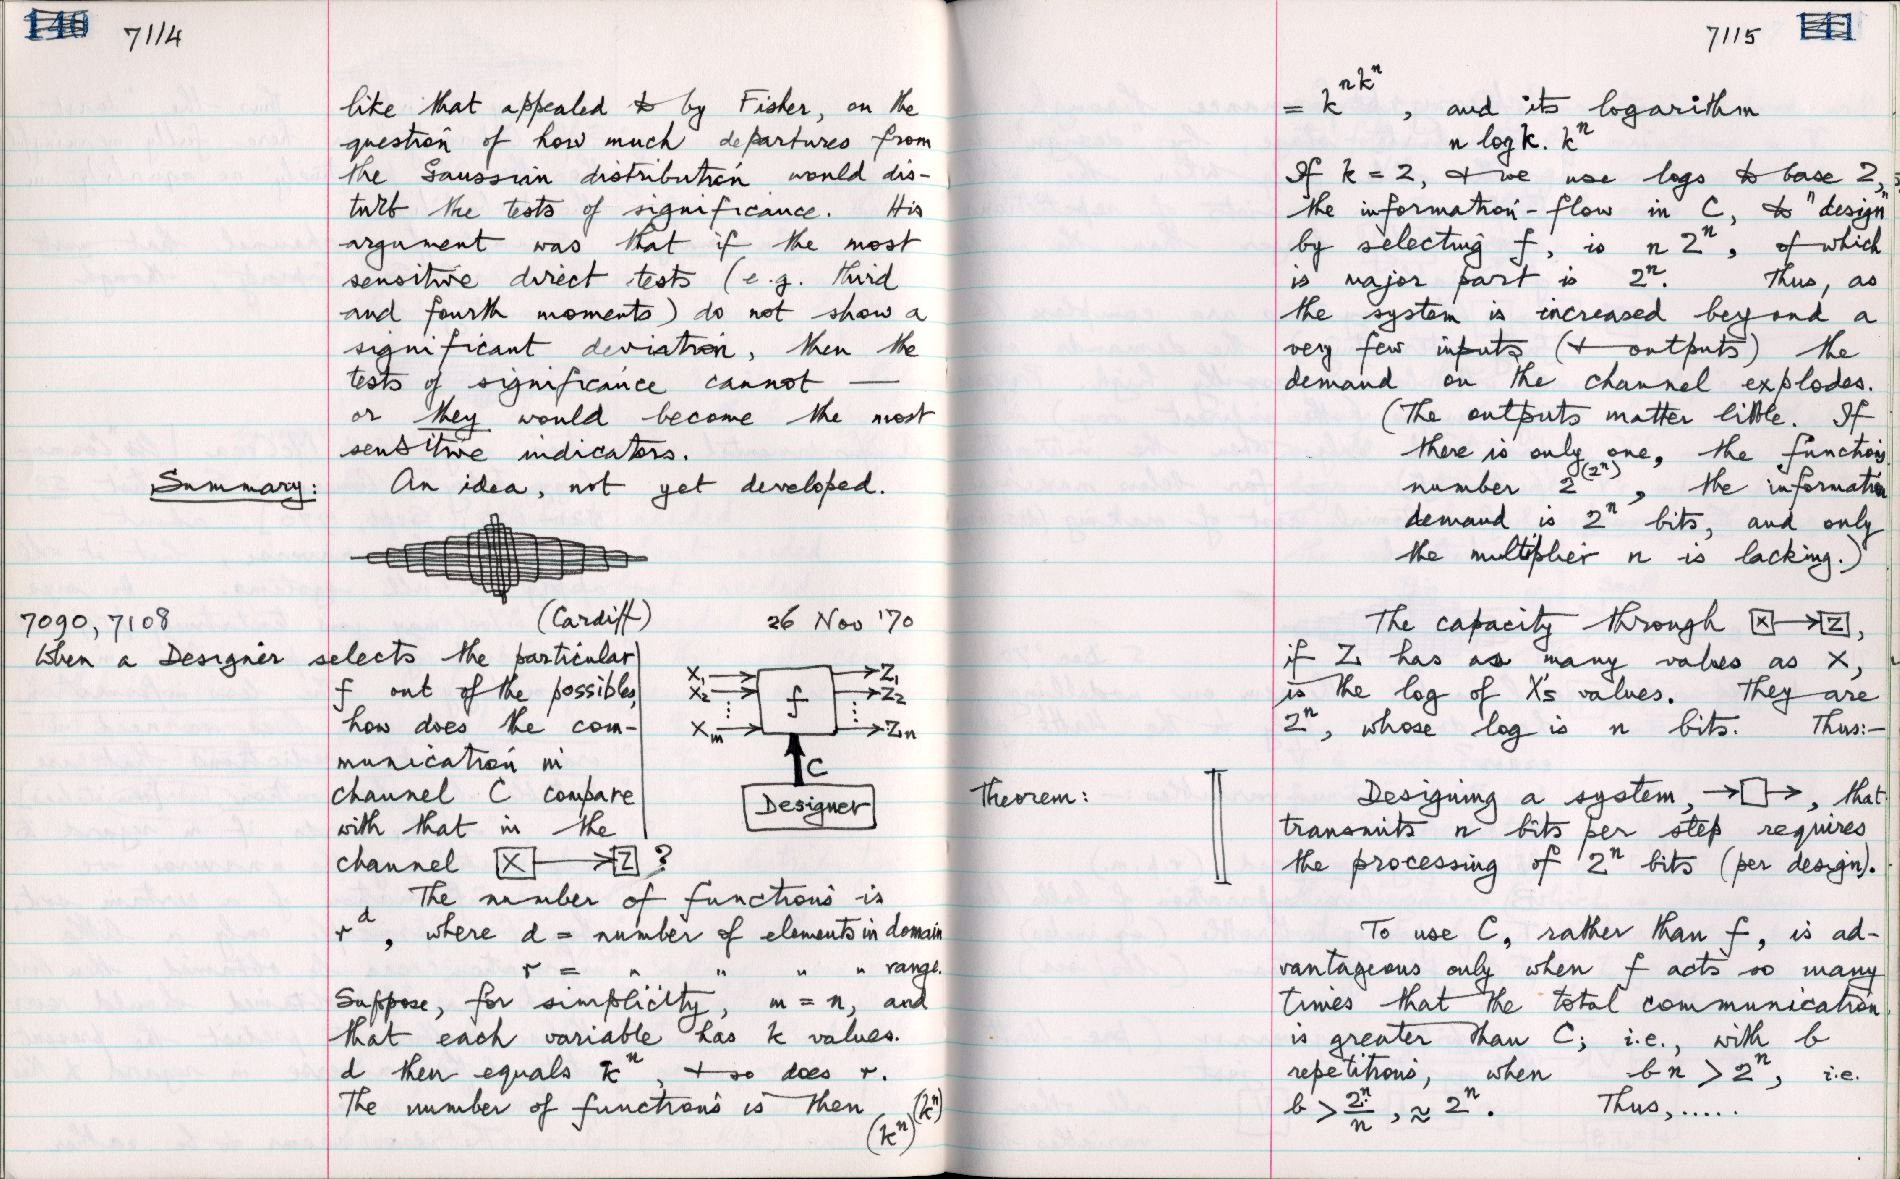 140 7114
like that appealed to by Fisher, on the
question of how much departures from
the Gaussian distribution would dis-
turb the tests of significance. His
argument was that if the most
sensitive direct tests (e.g. third
and fourth moments) do not show a
significant deviation, then the
tests of significance cannot —
or they would become the most
sensitive indicators.
Summary: An idea, not yet developed.
7090, 7108 (Cardiff) 26 Nov '70
When a Designer selects the particular
f out of the possibles,
how does the com-
munication in
channel C compare
with that in the
channel X → Z ?
X1 Z1
X2 f Z2
⋮ ⋮
Xm Zn
C
Designer
The number of functions is
r^d, where d = number of elements in domain
r = " " " " range.
Suppose, for simplicity, m = n, and
that each variable has k values.
d then equals k^n, + so does r.
The number of functions is then (k^n)^(k^n)
7115 141
= k^{nk^n}, and its logarithm
n log k. k^n
If k = 2, + we use logs to base 2,
the information-flow in C, to "design"
by selecting f, is n 2^n, of which
is major part is 2^n. Thus, as
the system is increased beyond a
very few inputs (+ outputs) the
demand on the channel explodes.
(The outputs matter little. If
there is only one, the functions
number 2^(2^n), the information
demand is 2^n bits, and only
the multiplier n is lacking.)
The capacity through X → Z,
if Z has as many values as X,
is the log of X's values. They are
2^n, whose log is n bits. Thus:–
Theorem: Designing a system, →□→, that
transmits n bits per step requires
the processing of 2^n bits (per design).
To use C, rather than f, is ad-
vantageous only when f acts so many
times that the total communication
is greater than C; i.e., with b
repetitions, when bn > 2^n, i.e.
b > 2^n/n, ≈ 2^n. Thus, .....